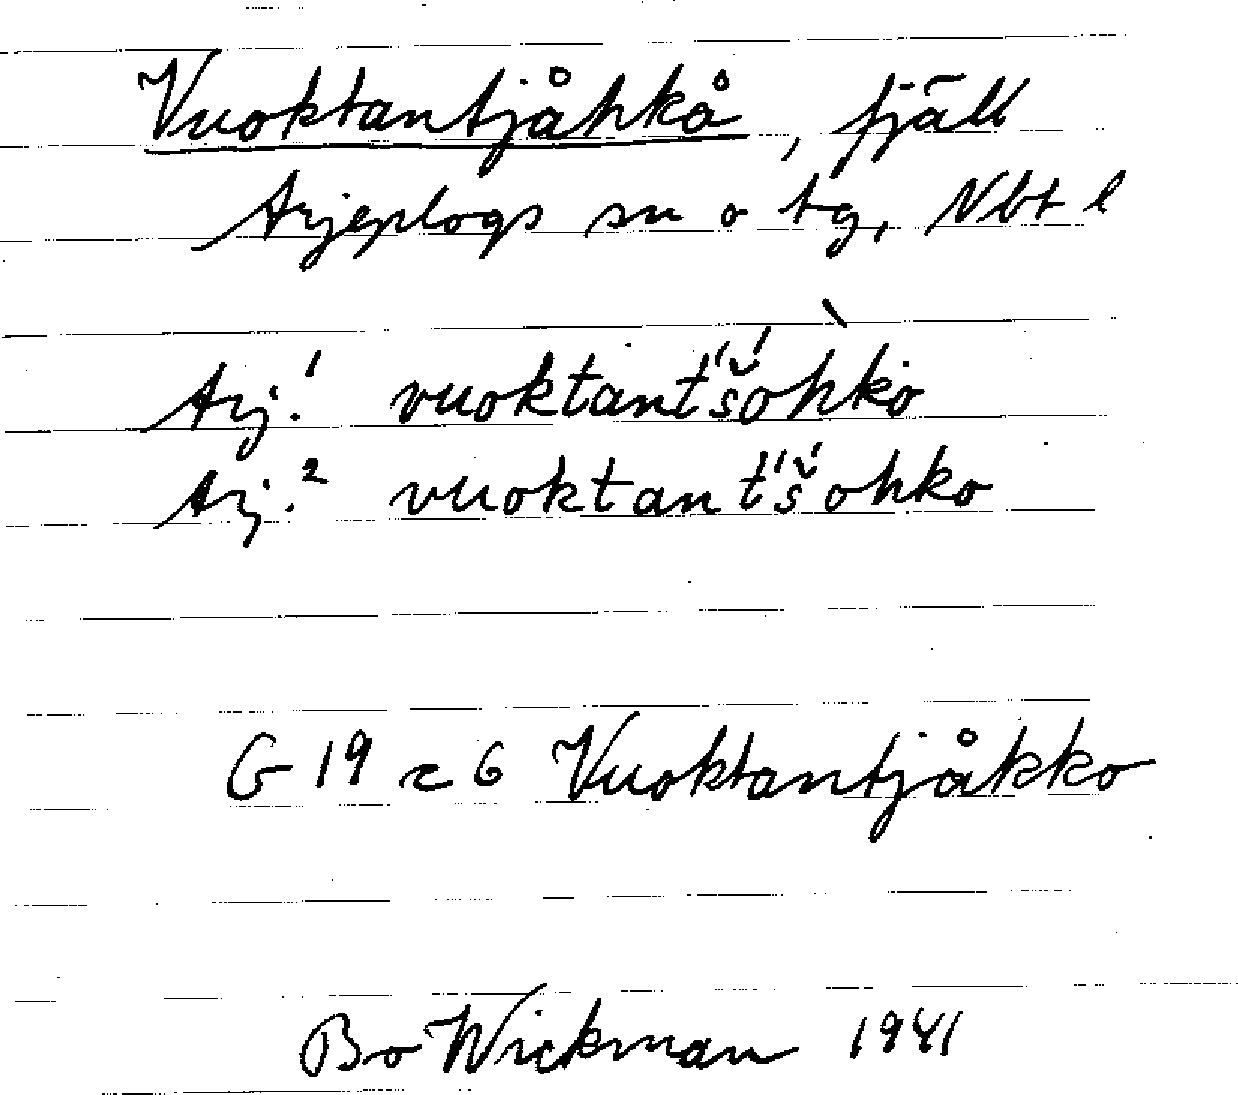 Vuoktantjåhkå, fjäll
Arjeplogs sn o tg, Nbt l
Arj.¹ vuoktant́š́òhkò
Arj.² vuoktant́š́ohko
G 19 c 6 Vuoktantjåkko
Bo Wickman 1941